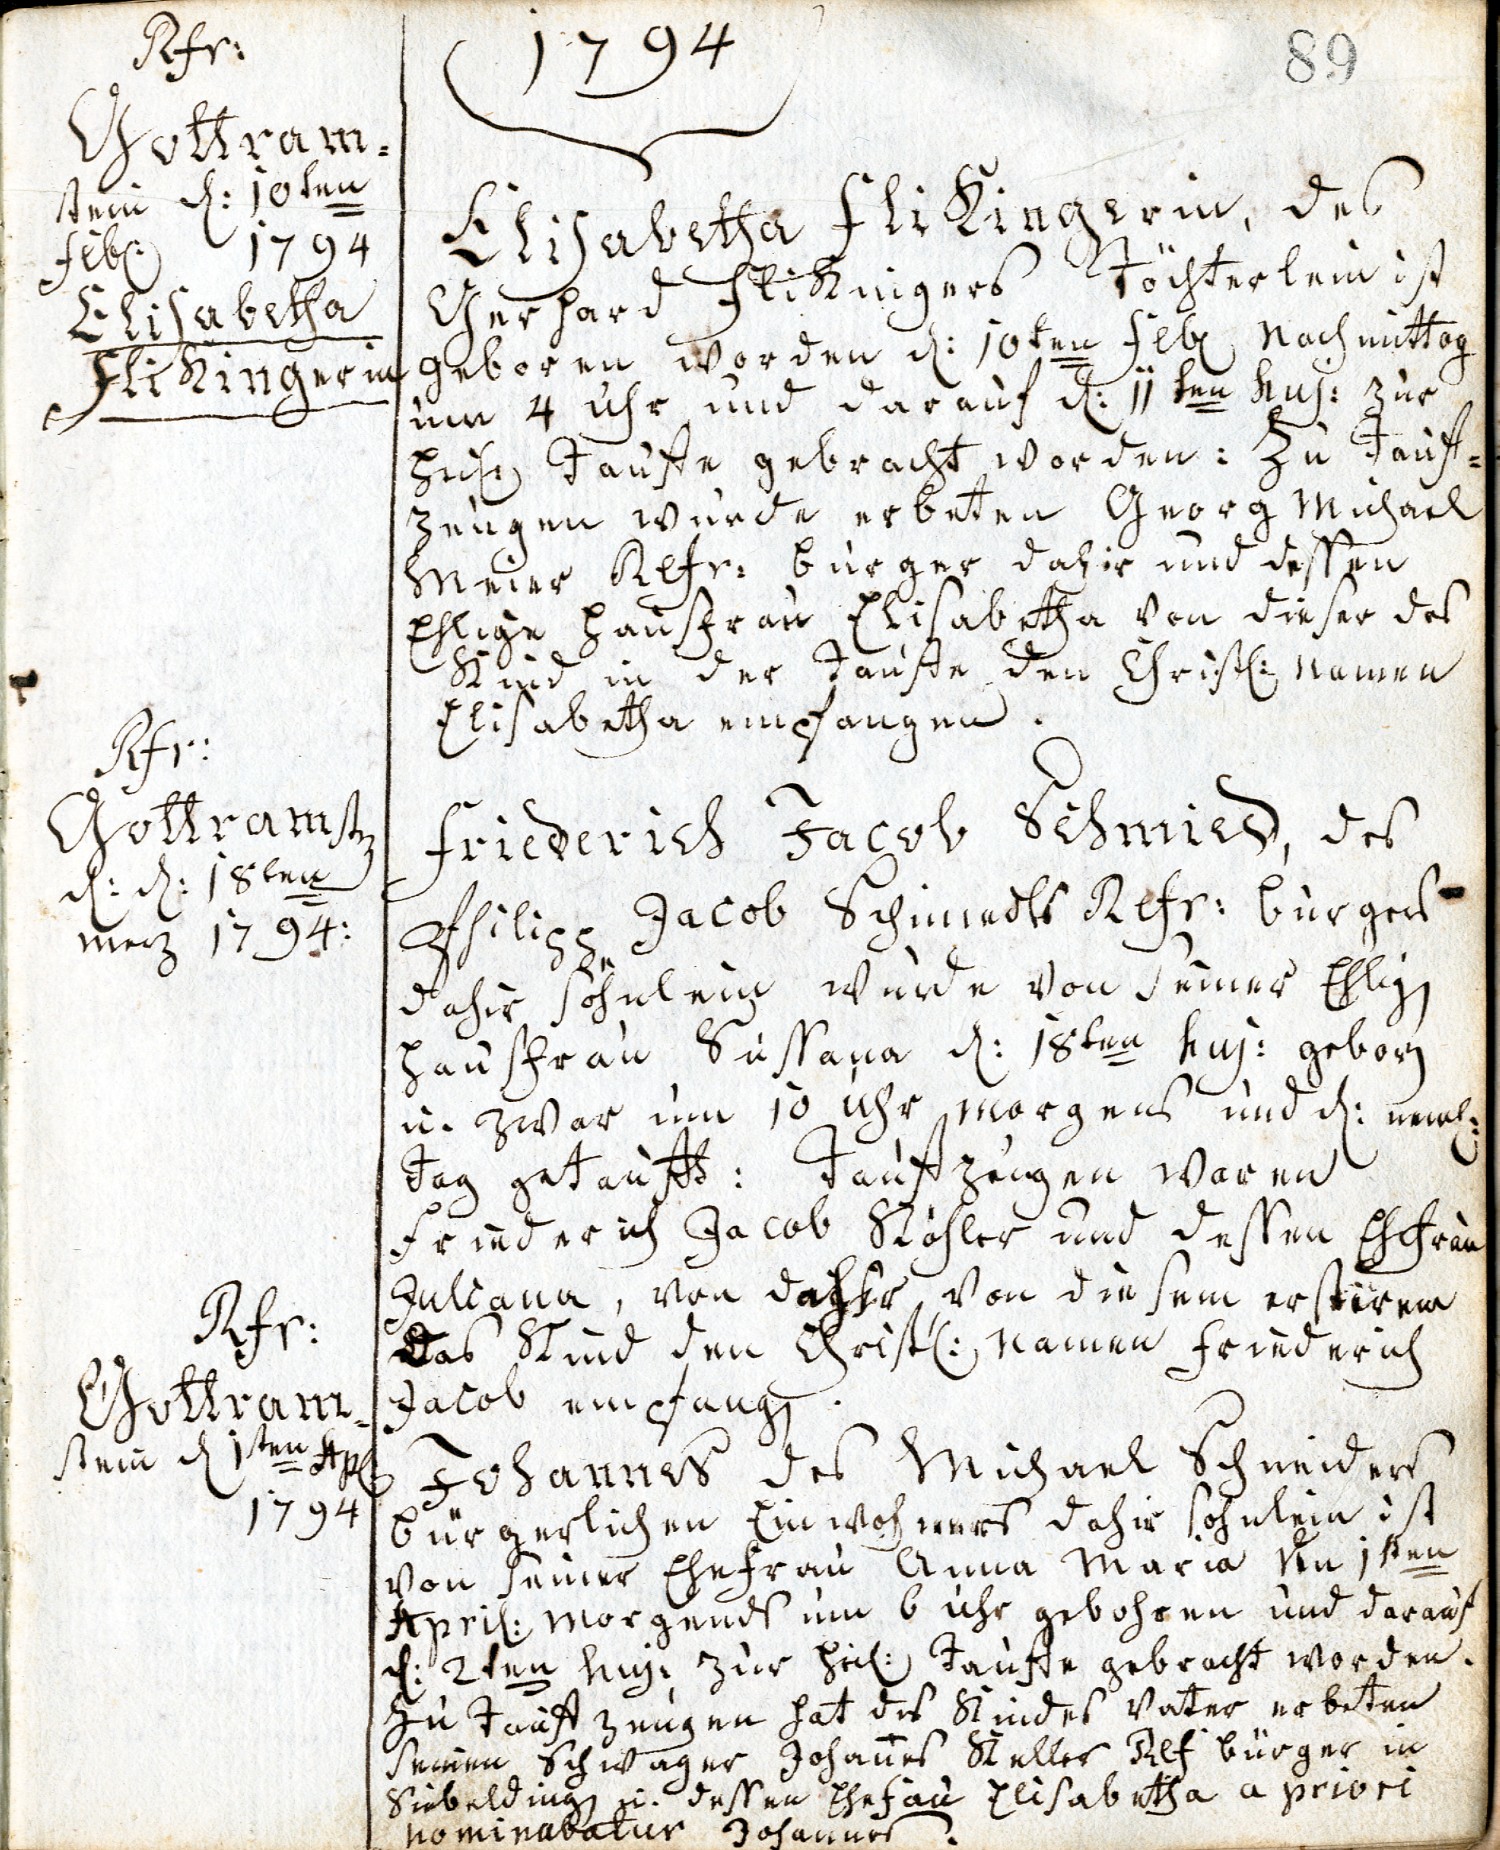 1794
89
Rfr:
Gottram=
stein d: 10ten
Feb: 1794
Elisabetha
Flickingerin
Elisabetha Flickingerin, des
Gerhard Flickingers Töchterlein ist
geboren worden d: 10ten Feb: Nachmittag
um 4 Uhr und darauf d: 11ten huj: zur
heil: Tauffe gebracht worden: Zu Tauf=
zeugen wurde erbeten Georg Michael
Meier Refr: burger dahir und dessen
Ehlige Hausfrau Elisabetha von dieser das
Kind in der Tauffe den Christl: Namen
Elisabetha empfangen.
Rfr:
Gottramst
d: d: 18ten
Merz 1794:
Friederich Jacob Schmied, des
Philipp Jacob Schmieds Refr: burgers
dahir söhnlein wurde von seiner Ehlig
Hausfrau Sussana d: 18ten huj: geborn
u. zwar um 10 Uhr morgens und d: neml:
Tag getaufft: Taufzeugen waren
Friederich Jacob Köhler und dessen Ehfrau
Juliana, von dahir, von diesem ersteren
das Kind den Christl: Namen Friederich
Jacob empfang.
Rfr:
Gottram=
stein d 1ten Apl
1794
Johannes des Michael Schneiders
bürgerlichen Einwohners dahir söhnlein ist
von seiner Ehefrau Anna Maria den 1ten
April: Morgends um 6 Uhr gebohren und darauf
d: 2ten huj: zur heil: Tauffe gebracht worden.
Zu Taufzeugen hat des Kindes Vater erbeten
seinen Schwager Johañes Keller Ref bürger in
Siebelding u. dessen Ehefrau Elisabetha a priori
nominabatur Johannes.